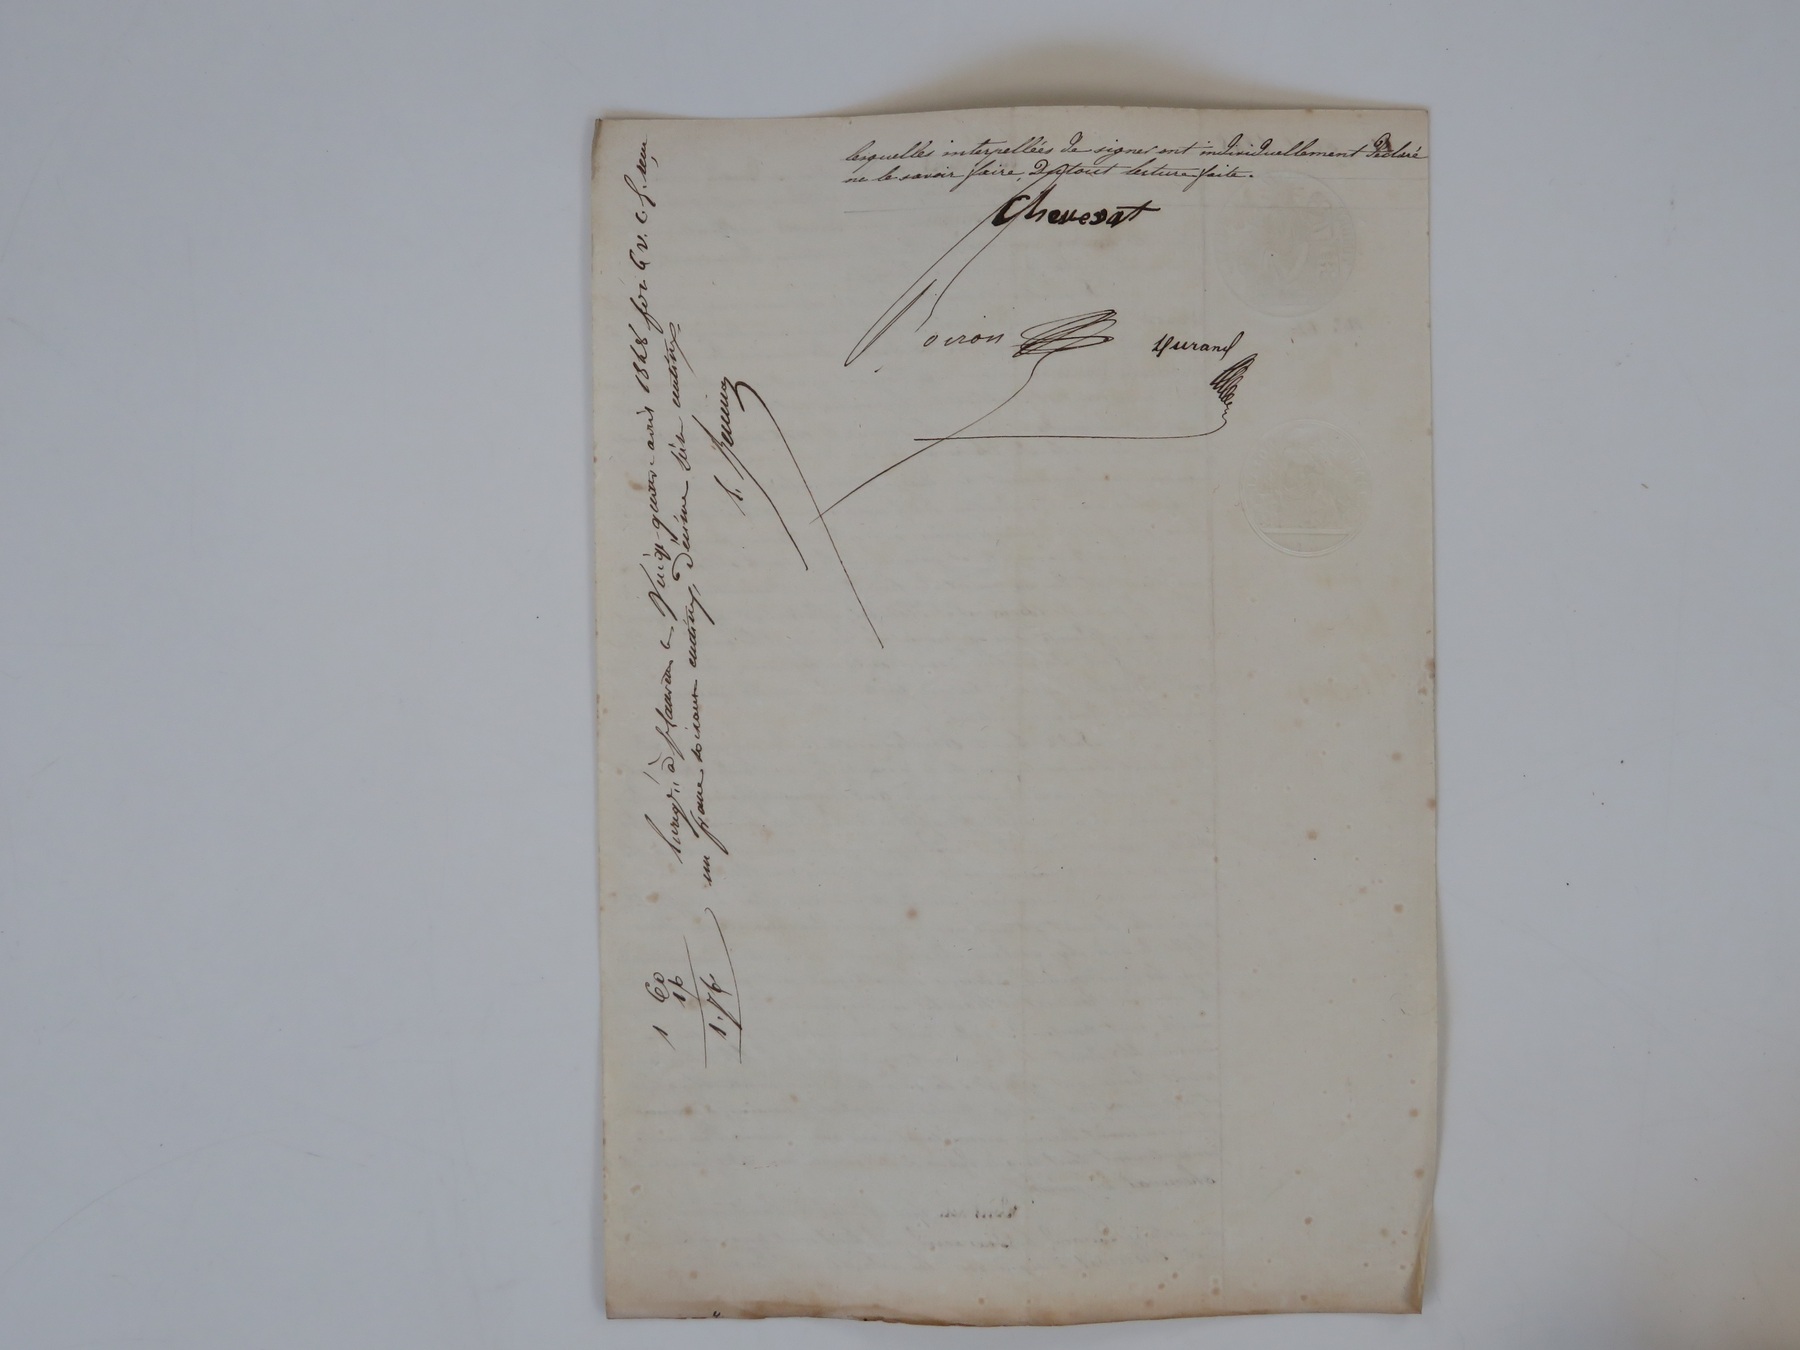 lesquelles interpellées de signer ont individuellement déclaré
ne le savoir faire, du tout lecture faite.
Chevesat
Poiron
Durand
à le Vingt quatre avril 1848 fol. 6 v. c.
un franc soixante centimes, décime seize centimes
1 60
16
1.76